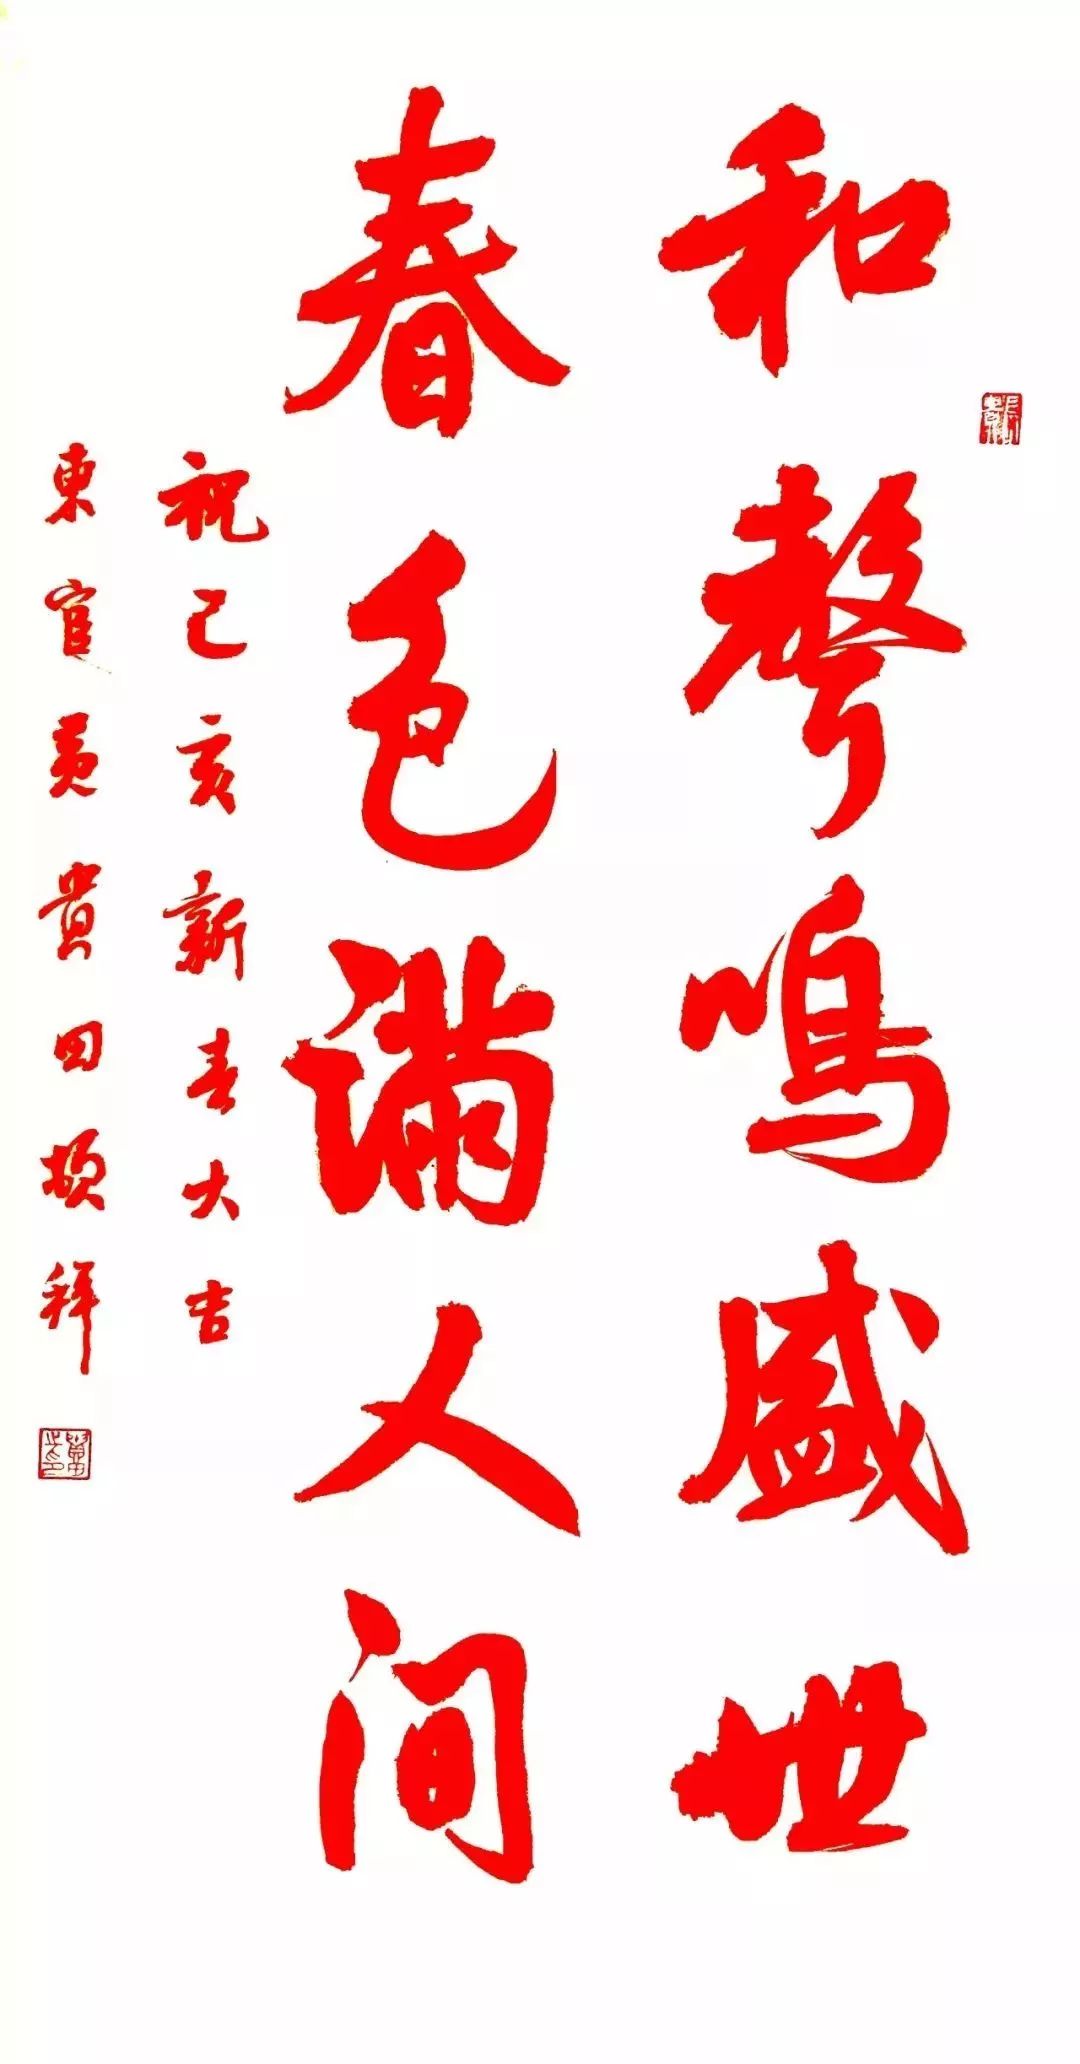 和聲鳴盛世
春色滿人间
祝己亥新春大吉
東官黄貴田頓拜